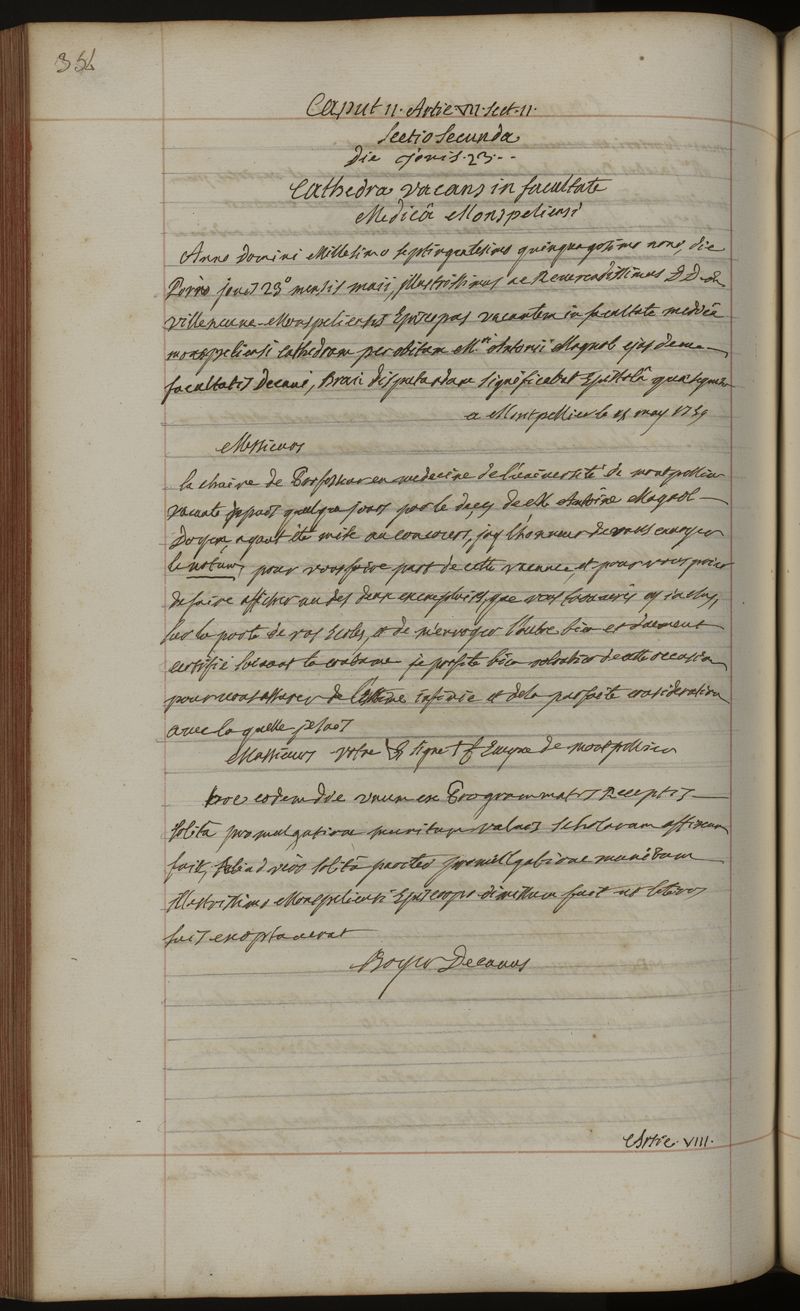 354
Caput 11. Artic VII. Sect. 11.
Sectio Secunda
Die jovis. 23. --
Cathedra vacans in facultate
Medicâ Monspeliensi
Anno Domini Millesimo septingentesimo quinquagesimo nono, die
jovis 23° mensis maii, illustrissimus ac Reverendissimus D D de
villeneuve Monspeliensis Episcopus vacantem in facultate medicâ
monspeliensi Cathedram per obitum Mri Antonii Magnol ejusdem
facultatis Decani, disputandam significabat Epistolâ quae sequitur
a Montpellier le 15 may 1759
Messieurs
la chaire de Professeur en medecine de l'université de montpellier
vacante depuis quelque jours par le deces de M Antoine Magnol
Doyen, ayant été mise au concours, jay l'honneur de vous envoyer
pour vous faire part de cette vacance, et pour vous prier
de faire afficher un des deux exemplaires, que vous trouverés cy inclus,
sur la porte de vos Ecoles, et de m'envoyer l'autre bien et duement
certifié suivant la coutume je profite bien volontier de cette occasion
pour vous assurer de l'estime infinie et de la parfaite consideration
avec la quelle je suis
Messieurs votre & signé † f Eveque de montpellier
hoc eodem die unum ex Programmatis Receptis
solitâ promulgatione munitum valvis Scholarum affixum
fuit, aliud vero solitâ pariter promulgatione munitum
illustrissimo Monspeliensi Episcopo dimissum fuit ut litteris
suis exoptaverat
Boyer Decanus
Artic. VIII.